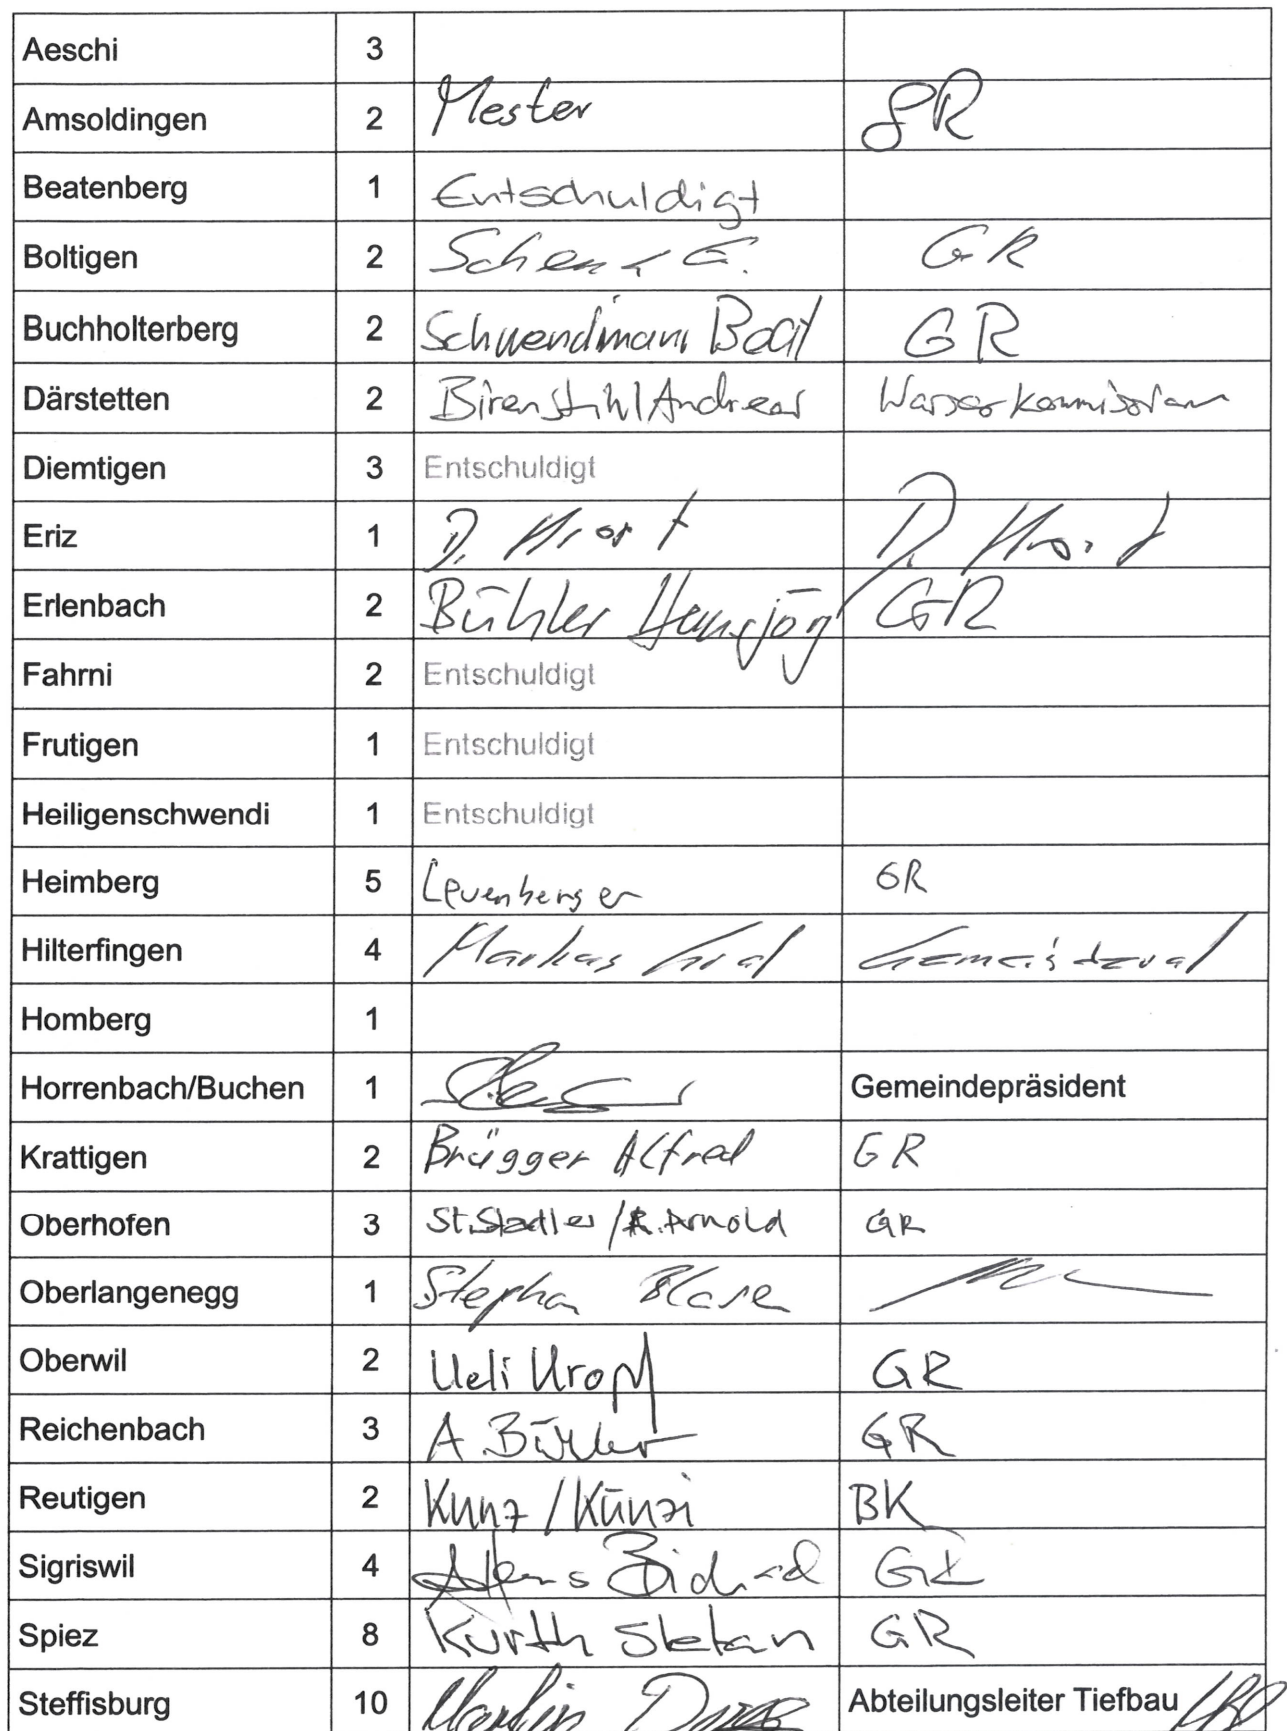 Aeschi 3
Amsoldingen 2 Mester GR
Beatenberg 1 Entschuldigt
Boltigen 2 Schenk E. GR
Buchholterberg 2 Schwendimann Beat GR
Därstetten 2 Birenstihl Andreas Wasserkommission
Diemtigen 3 Entschuldigt
Eriz 1 D.
Erlenbach 2 Bühler Hansjörg GR
Fahrni 2 Entschuldigt
Frutigen 1 Entschuldigt
Heiligenschwendi 1 Entschuldigt
Heimberg 5 Leuenberger GR
Hilterfingen 4 Markus Graf Gemeinderat
Homberg 1
Horrenbach/Buchen 1 Gemeindepräsident
Krattigen 2 Brügger Alfred GR
Oberhofen 3 St.Stadler / R.Arnold GR
Oberlangenegg 1 Stephan Blaser
Oberwil 2 Ueli Kropf GR
Reichenbach 3 A. Bühler GR
Reutigen 2 Kunz / Künzi BK
Sigriswil 4 GR
Spiez 8 Kurth Stefan GR
Steffisburg 10 Martin Abteilungsleiter Tiefbau